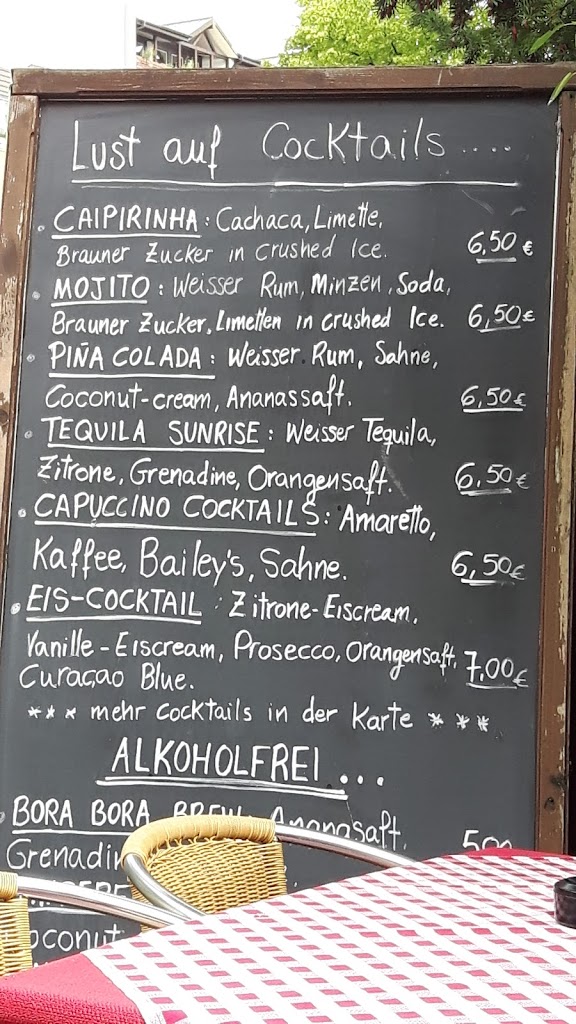 Lust auf Cocktails ....
CAIPIRINHA: Cachaca, Limette,
Brauner Zucker in crushed Ice. 6,50 €
MOJITO: Weisser Rum, Minzen, Soda,
Brauner Zucker, Limetten in crushed Ice. 6,50 €
PIÑA COLADA: Weisser Rum, Sahne,
Coconut-cream, Ananassaft. 6,50 €
TEQUILA SUNRISE: Weisser Tequila,
Zitrone, Grenadine, Orangensaft. 6,50 €
CAPUCCINO COCKTAILS: Amaretto,
Kaffee, Bailey's, Sahne. 6,50 €
EIS-COCKTAIL: Zitrone-Eiscream,
Vanille-Eiscream, Prosecco, Orangensaft, 7,00 €
Curaçao Blue.
*** mehr Cocktails in der Karte ***
ALKOHOLFREI ...
BORA BORA BREW: Ananasaft,